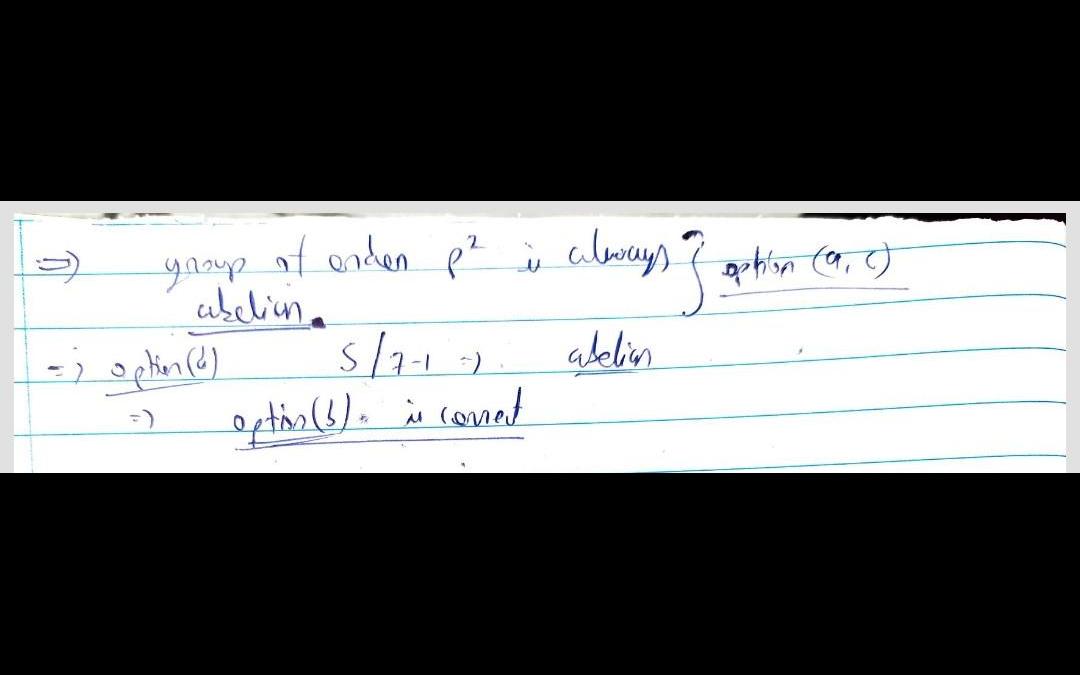 ⇒ group of order p² is always } option (a, c)
abelian.
⇒ option (d) 5/7-1 ⇒ abelian
⇒ option (b). is correct